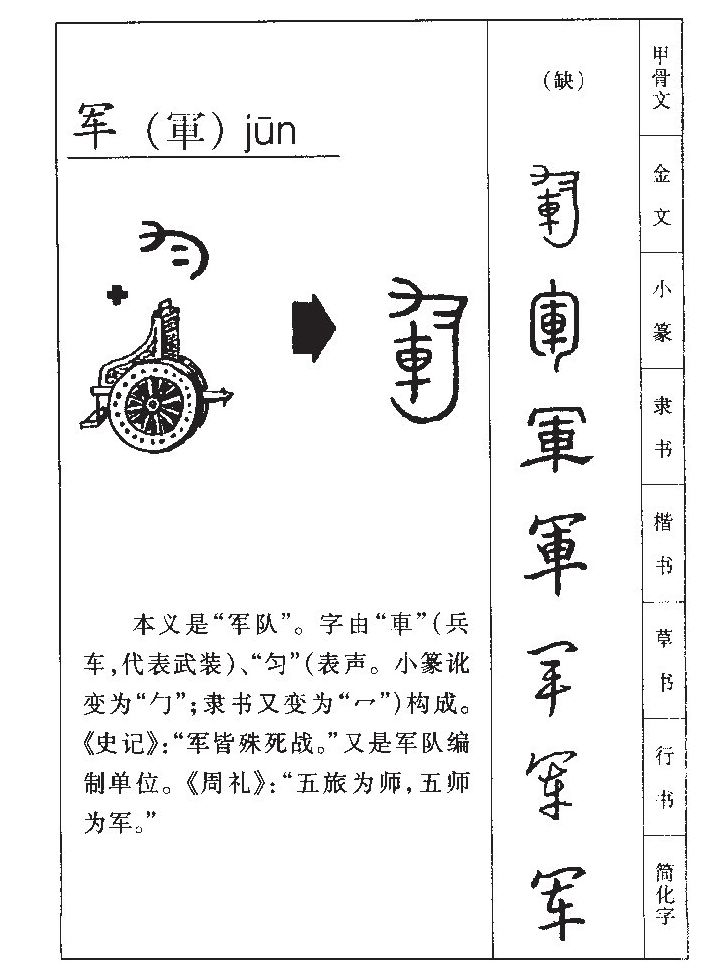 军（軍）jūn
本义是“军队”。字由“車”（兵
车，代表武装）、“匀”（表声。小篆讹
变为“勹”；隶书又变为“冖”）构成。
《史记》：“军皆殊死战。”又是军队编
制单位。《周礼》：“五旅为师，五师
为军。”
（缺）
軍
軍
軍
軍
军
军
军
甲骨文
金文
小篆
隶书
楷书
草书
行书
简化字